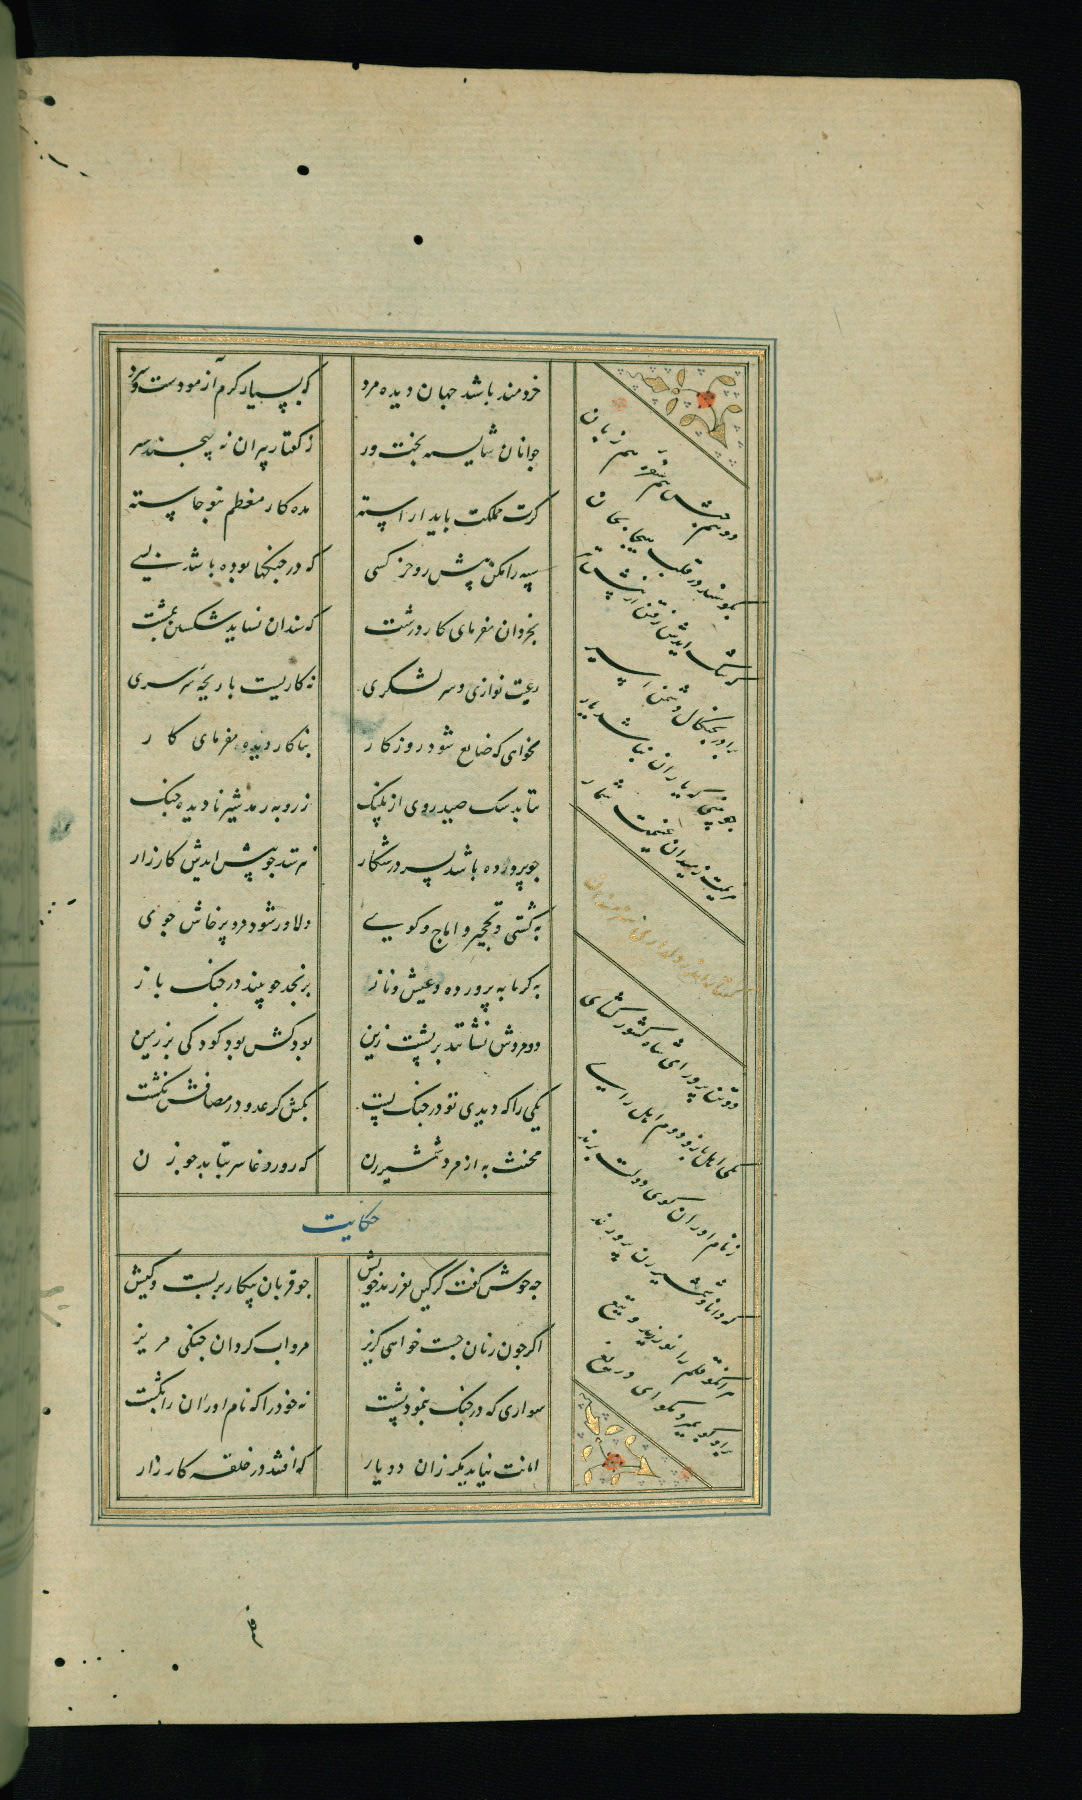 خردمند باشد جهان دیده مرد که بسیار کرم آزمودست و سرد
جوانان شایسه بخت ور ز کفتار پیران نه پیچند سر
کرت مملکت باید اراسته مده کار معظم بنوخاسته
سپه را مکن پیش رو جز کسی که در جنکها بوده باشد بسی
بخردان مفرمای کار درشت که سندان نساید شکستن بمشت
رعیت نوازی و سر لشکری نه کاریست بازیچه و سرسری
نخواهی که ضایع شود روزکار بناکار دیده مفرمای کار
نتابد سک صید روی از پلنک ز روبه رمد شیر نادیده جنک
جو پرورده باشد پسر در شکار نترسد جو پیش ایدش کارزار
به کشتی و نخجیر و اماج و کوی دلاور شود مرد پرخاش جوی
به کرمابه پرورده و عیش و ناز برنجد جو بیند در جنک باز
دو مردش نشانند بر پشت زین بود کش بود کودکی بر زمین
یکی را که دیدی تو در جنک پشت بکش کر عدو در مصافش نکشت
مخنث به از مرد شمشیر زن که روز وغا سر بتابد جو زن
حکایت
جه خوش کفت کرکین بفرزند خویش جو قربان پیکار بربست و کیش
اکر جون زنان جست خواهی کریز مرو اب کردان جنکی مریز
سواری که در جنک بنمود پشت نه خود را که نام اوران را بکشت
نیاید مکر زان دو یار که افتند در حلقه کارزار
دو هم جنس هم سفره هم زبان
بکوشند در قلب هیجا بجان
که ننک ایدش رفتن از پیش تیر
برادر بجنکال دشمن اسیر
جو بینی که یاران نباشند یار
هزیمت ز میدان غنیمت شمار
دو تن پرور ای شاه کشور کشای
یکی اهل بازو دوم اهل رای
ز نام اوران کوی دولت برند
که دانا و شمشیر زن پرورند
هر انکو قلم را نورزید و تیغ
برو کر بمیرد مکو ای دریغ